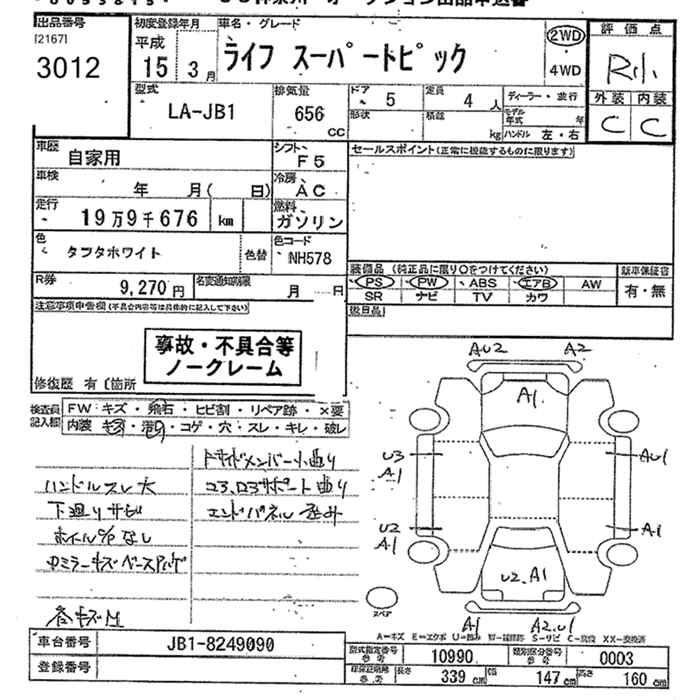 出品番号
[2167]
3012
初度登録年月
平成
15 3月
車名・グレード
ライフ スーパートピック
2WD
4WD
評価点
外装 内装
C C
型式
LA-JB1
排気量
656
CC
ドア
5
定員
4 人
ディーラー・並行
形状
積載
kg
モデル年式 年
ハンドル 左・右
車歴
自家用
シフト
F5
セールスポイント(正常に機能するものに限ります)
車検
年 月( 日)
冷房
AC
走行
19万9千676 km
燃料
ガソリン
色
タフタホワイト
色替
色コード
NH578
装備品 (純正品に限り○をつけてください)
新車保証書
PS・PW・ABS・エアB AW
有・無
SR ナビ TV カワ
R券
9,270円
名変通知期限
月 日
後日品
注意事項申告欄(不具合内容等は具体的に記入して下さい)
事故・不具合等
ノークレーム
修復歴 有〔箇所
検査員
記入欄
FW キズ・飛石・ヒビ割・リペア跡・×要
内装 キズ・コゲ・穴・スレ・キレ・破レ
ハンドルスレ大
下廻りサビ
エンドパネル歪み
AU2
A2
A1
U3
A1
AU1
U2
A1
A1
U2.A1
スペア
A1
A2.U1
車台番号
JB1-8249090
登録番号
型式指定番号
参考
10990
類別区分番号
参考
0003
長さ
339 cm
幅
147 cm
高さ
160 cm